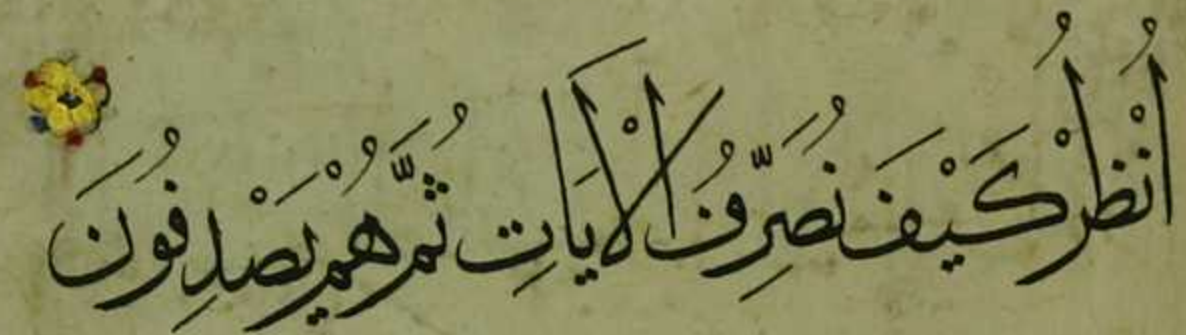 اُنْظُرْ كَيْفَ نُصَرِّفُ الْاٰيَاتِ ثُمَّ هُمْ يَصْدِفُونَ